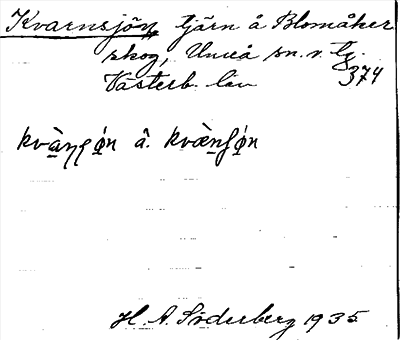 Kvarnsjön tjärn å Blomåker
skog, Umeå sn. o. tg.
Västerb. län 374
kvàŋʃǿn å. kvæ̀nʃǿn
H. A. Söderberg 1935